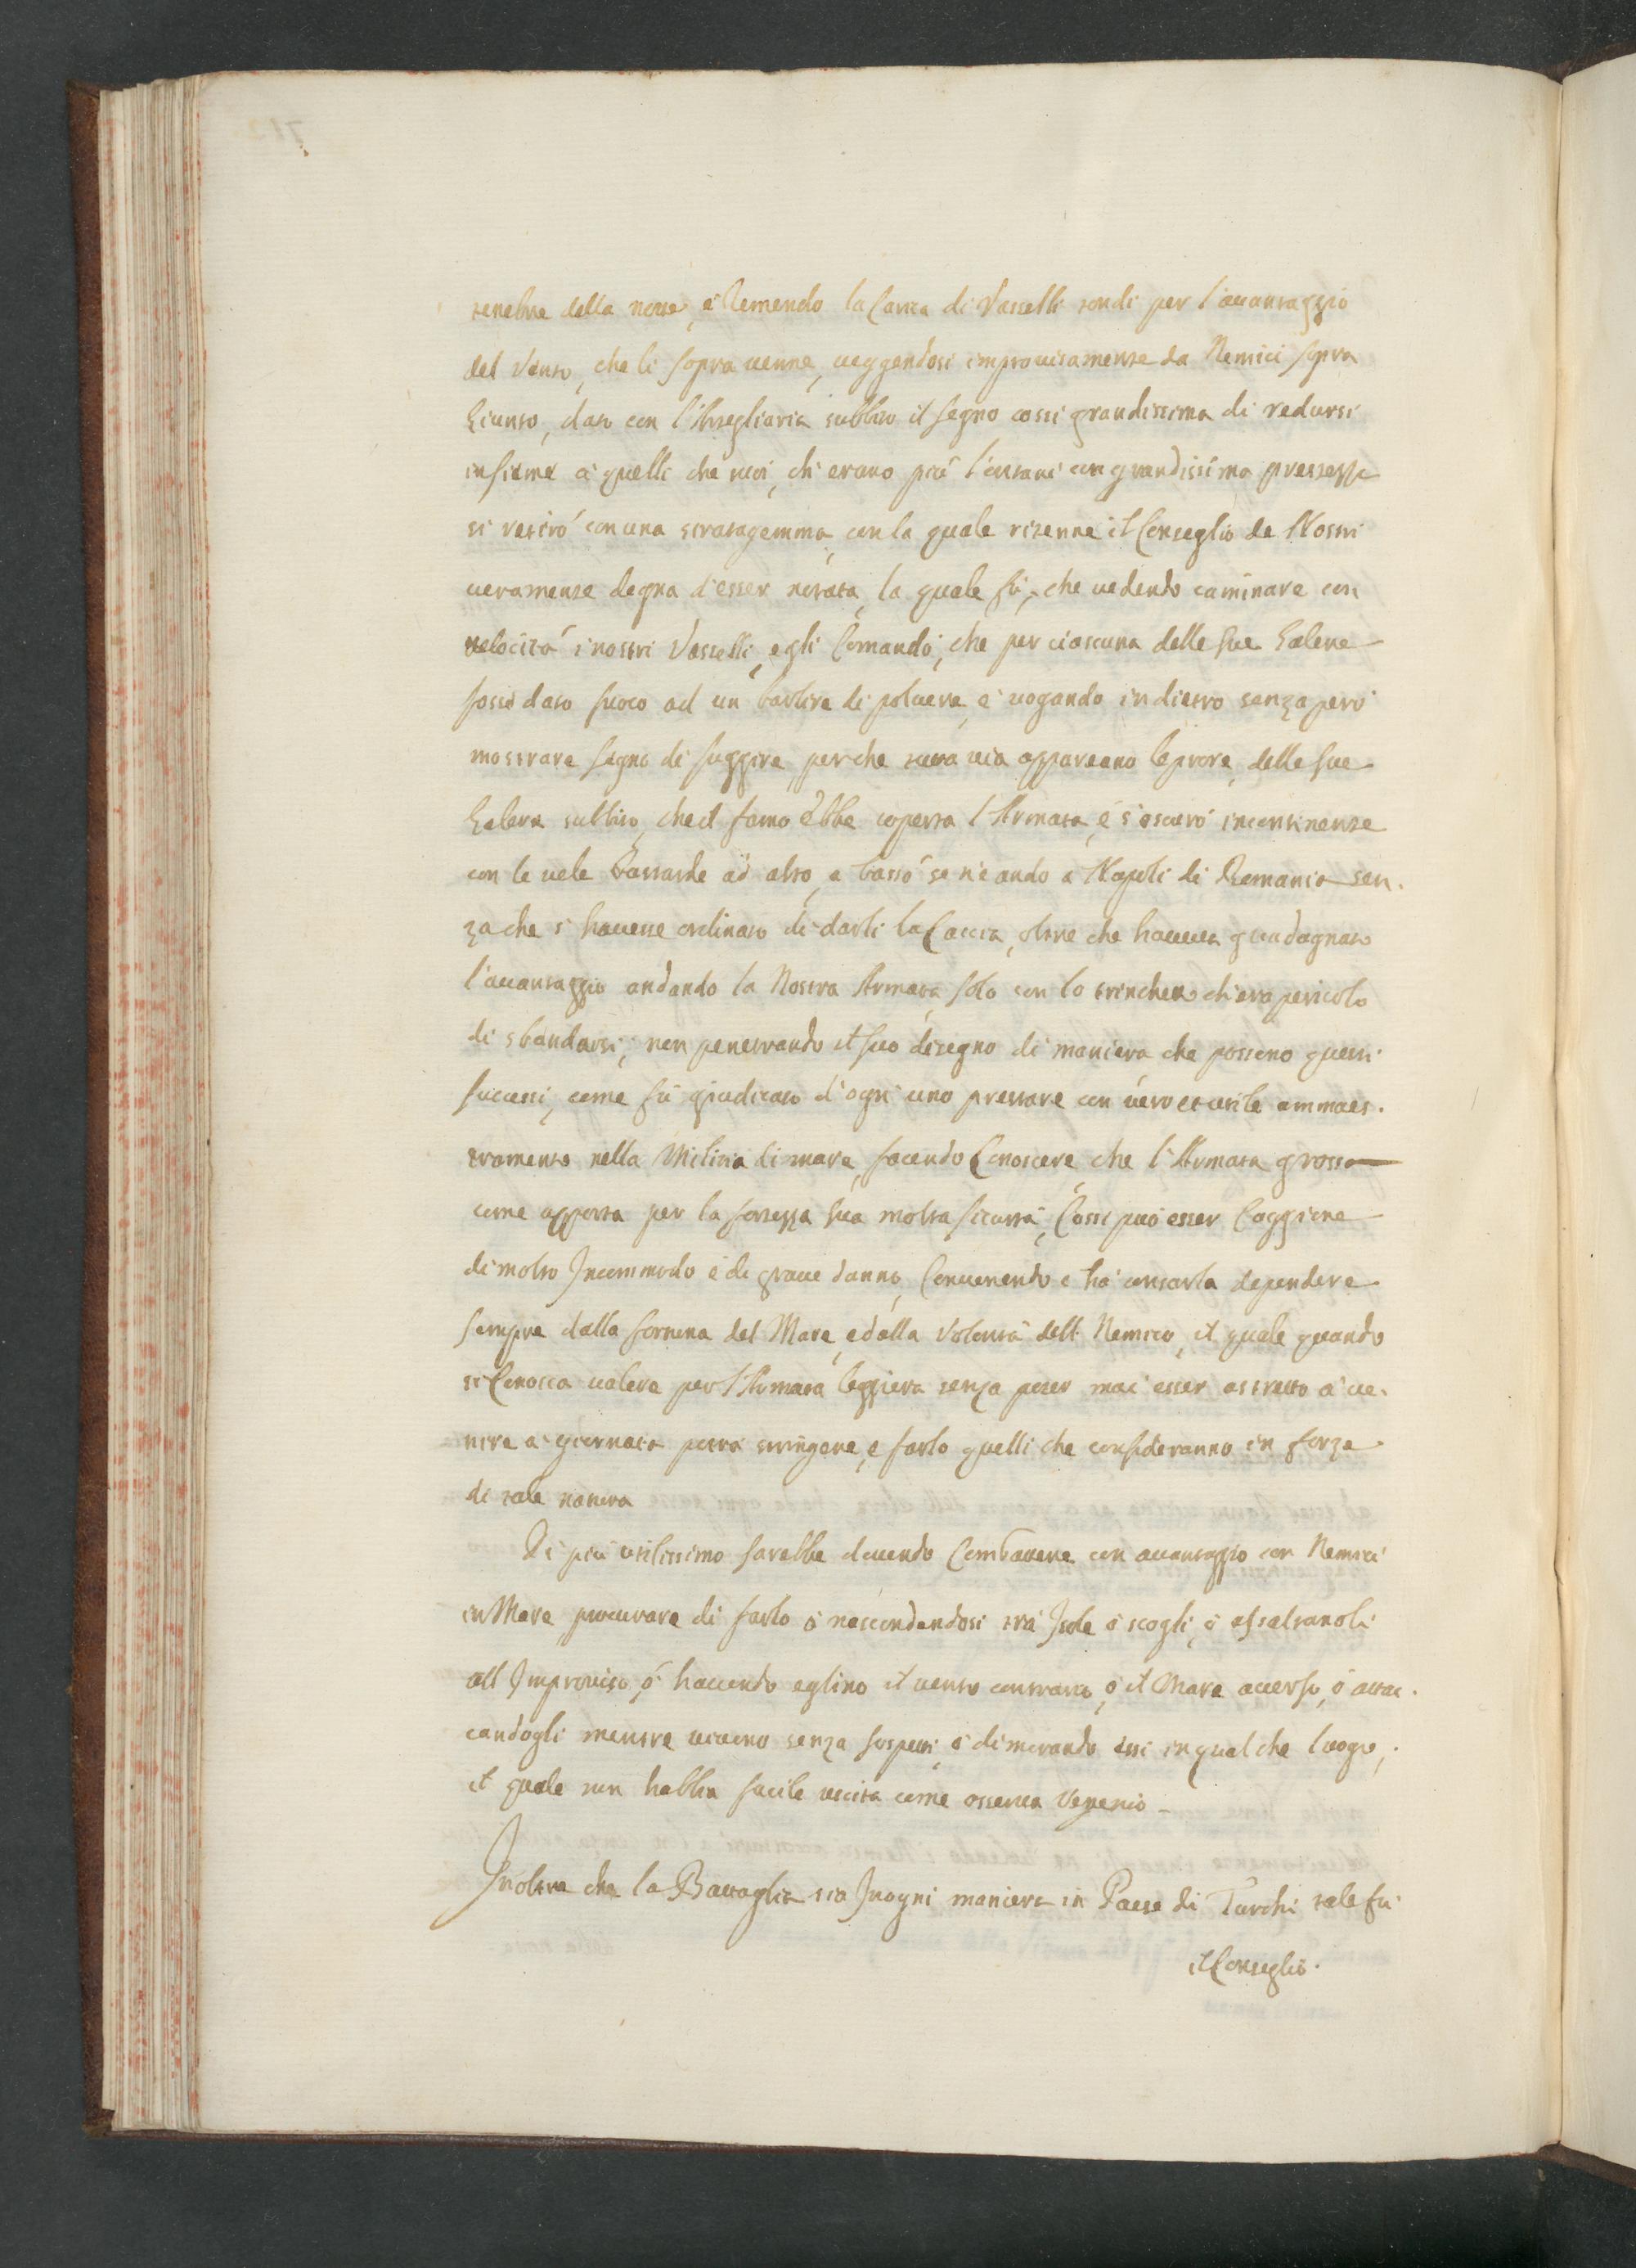 tenebre della notte, e temendo la Carica di Vasselli tondi per l'auantaggio
del Vento, che li sopra uenne, ueggendosi improuisamente da Nemici sopra
Giunto, dato con l'Artegliaria subbito il segno cossi grandissima di redursi
insieme à quelli che noi, ch'erano più l'ontani con grandissima prestezza
si restrò con una stratagemma, con la quale ritenne il Conseglio de Nostri
ueramente degna d'esser notata, la quale fù, che uedendo caminare con
uelocità i nostri Vasselli, egli Comandò, che per ciascuna delle sue Galere
fosse dato fuoco ad un barlire di poluere, e uogando indietro senza però
mostrare segno di fuggire perche tutta uia appareano le prore, delle sue
Galere subbito, che il fumo ebbe coperta l'Armata, e s'oscurò incontinente
con le uele bastarde ad alto, a basso se n'e ando a Napoli di Romania sen.
za che s'hauesse ordinato di darli la Caccia, oltre che haueua guadagnato
l'auantaggio andando la Nostra Armata solo con lo trinchetto ch'era pericolo
di sbandarsi, non penetrando il suo disegno di maniera che possono questi
successi, come fù giudicato d'ogni uno prestare con uero et utile ammaes.
tramento nella Militia di mare, facendo Conoscere, che l'Armata grossa
come apporta per la fortezza sua molta sicurtà, Cossi può esser Caggione
di molto Incommodo e di graue danno, Conuenendo e hà uersarla dependere
sempre dalla fortuna del Mare, e dalla Volontà dell Nemico, il quale quando
si Conosca ualere per l'Armata leggiera senza poter mai esser astretto à ue.
nire a giornata potrà stringere, e farlo quelli che confideranno in forze
di tale natura
Di più utilissimo sarebbe douendo Combattere con auantaggio con Nemici
in Mare procurare di farlo ò nascondendosi trà Isole ò scogli, ò assaltanoli
all Improuiso, ò hauendo eglino il uento contrario, ò il Mare auerso, ò attac.
candogli mentre uiuono senza sospetti ò dimorando essi in qual che luogo,
il quale non habbia facile uscita come osserua Vegetio
Inoltre che la Battaglia sia Inogni maniera in Paese di Turchi tale fù
il Conseglio.